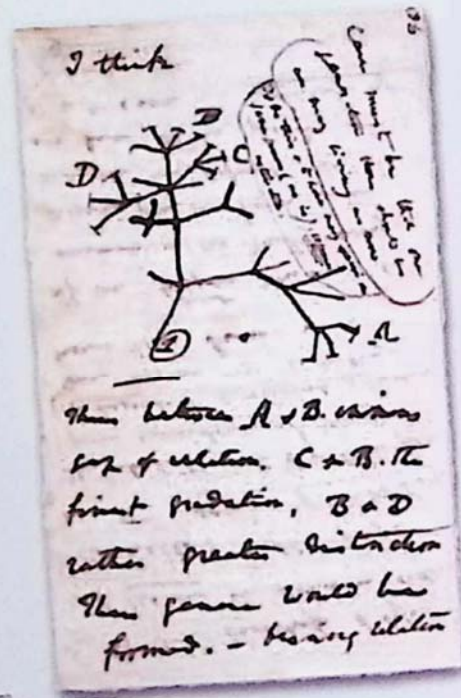 I think
B
D
C
A
1
36
Case must be that one
generation then should be
as many living as now
To do this & to have many species in
same genus (as is) requires
extinction
Thus between A & B. immense
gap of relation. C & B. the
finest gradation, B & D
rather greater distinction
Thus genera would be
formed. — bearing relation